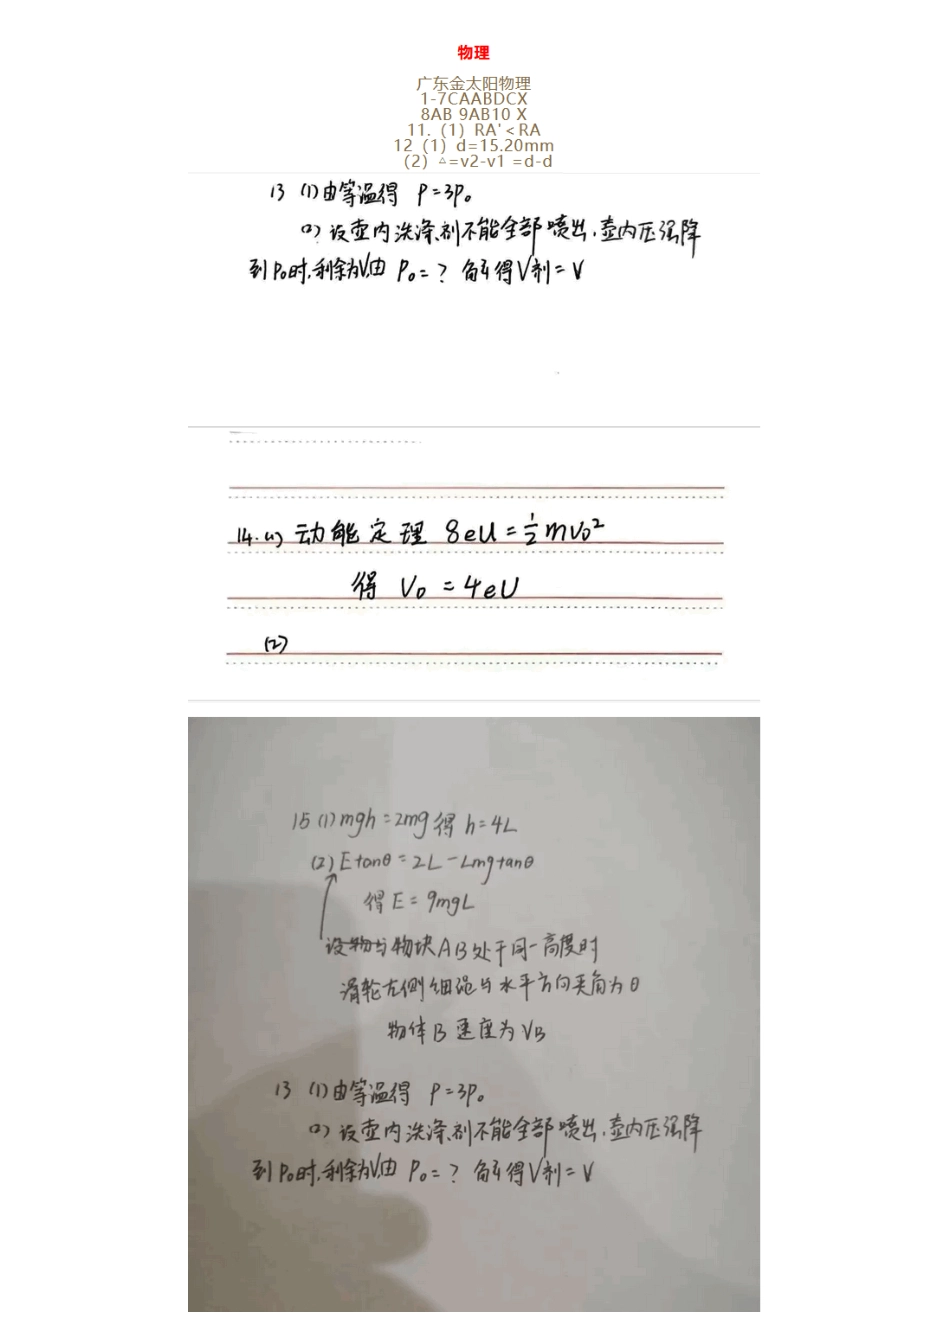 物理
广东金太阳物理
1-7CAABDCX
8AB 9AB10 X
11.（1）RA'<RA
12（1）d=15.20mm
（2）△=v2-v1 =d-d
13 (1)由等温得 P=3P₀
(2)设壶内洗涤剂不能全部喷出,壶内压强降
到P₀时,剩余为V,由 P₀=? 解得V剂=V
14.(1) 动能定理 8eU=½mv₀²
得 V₀=4eU
(2)
15 (1)mgh=2mg得 h=4L
(2)Etanθ=2L-Lmgtanθ
得E=9mgL
设物与物块AB处于同一高度时
滑轮左侧细绳与水平方向夹角为θ
物体B速度为VB
13 (1)由等温得 P=3P₀
(2)设壶内洗涤剂不能全部喷出,壶内压强降
到P₀时,剩余为V,由 P₀=? 解得V剂=V